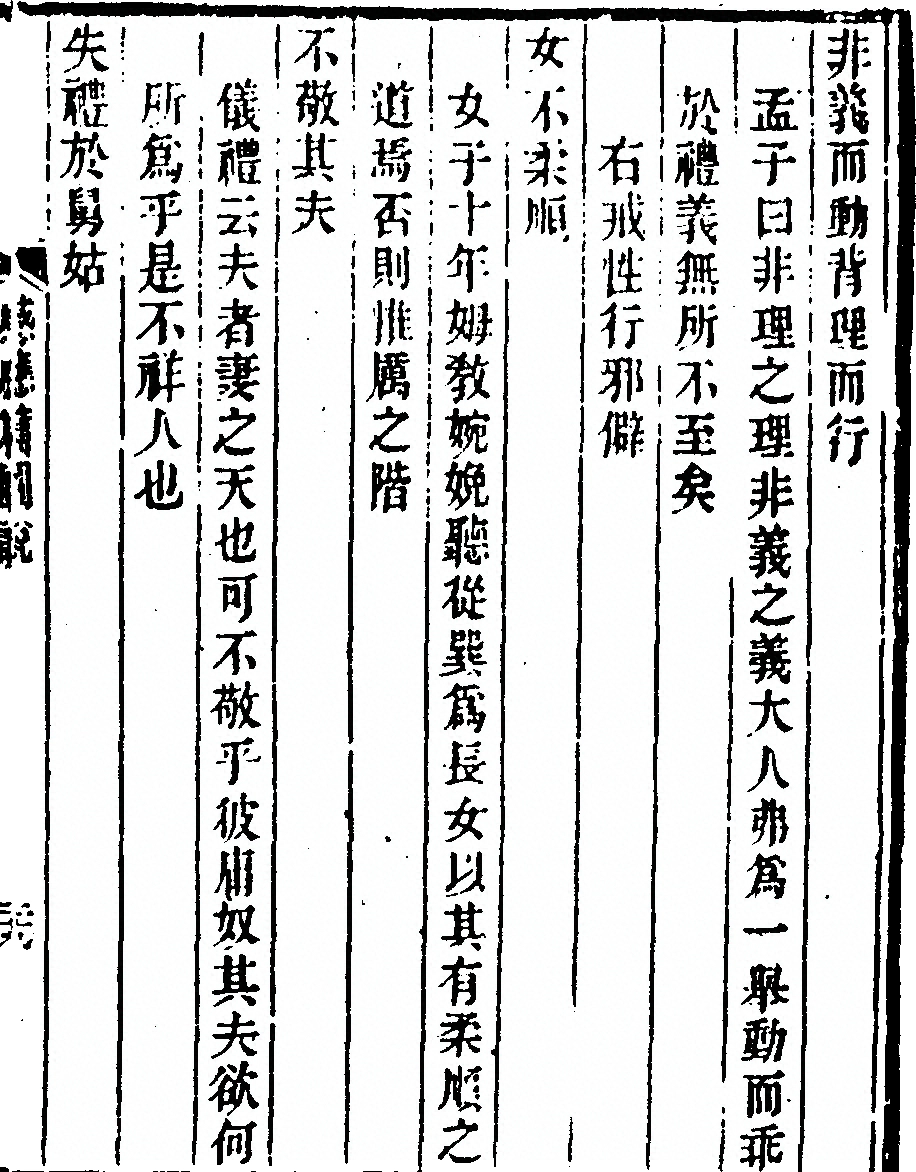 非義而動背理而行
孟子曰非理之理非義之義大人弗爲一舉動而乖
於禮義無所不至矣
右戒性行邪僻
女不柔順
女子十年姆教婉娩聽從巽爲長女以其有柔順之
道焉否則惟厲之階
不敬其夫
儀禮云夫者妻之天也可不敬乎彼庸奴其夫欲何
所爲乎是不祥人也
失禮於舅姑